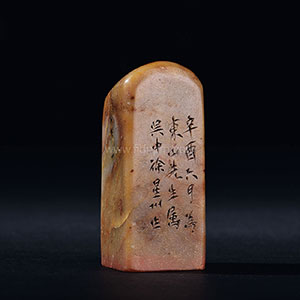 辛酉六月為
東山先生屬
吳中徐星州作